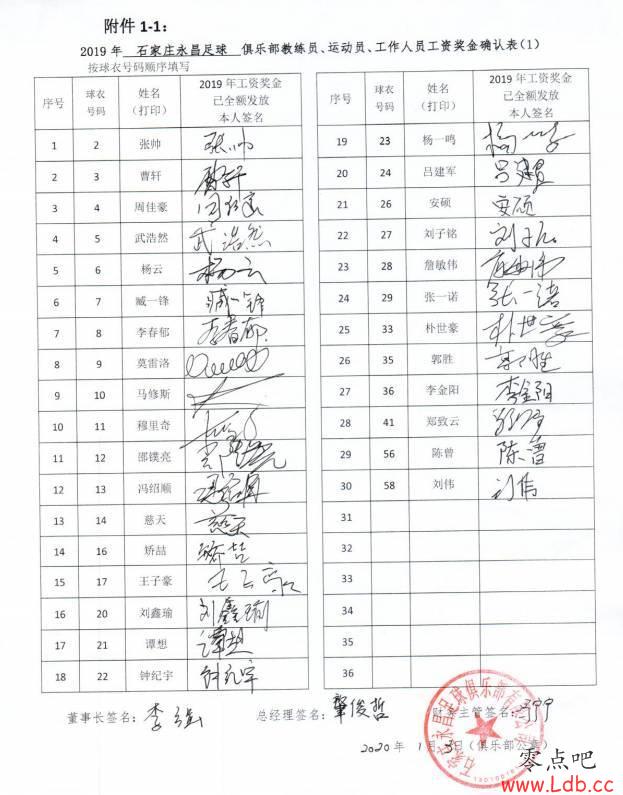 附件 1-1：
2019 年 石家庄永昌足球 俱乐部教练员、运动员、工作人员工资奖金确认表(1)
按球衣号码顺序填写
序号 球衣号码 姓名（打印） 2019 年工资奖金已全额发放本人签名
1 2 张帅 张帅
2 3 曹轩
3 4 周佳豪
4 5 武浩然 武浩然
5 6 杨云 杨云
6 7 臧一锋 臧一锋
7 8 李春郁 李春郁
8 9 莫雷洛
9 10 马修斯
10 11 穆里奇
11 12 邵镤亮
12 13 冯绍顺
13 14 慈天 慈天
14 16 矫喆 矫喆
15 17 王子豪
16 20 刘鑫瑜 刘鑫瑜
17 21 谭想 谭想
18 22 钟纪宇 钟纪宇
序号 球衣号码 姓名（打印） 2019 年工资奖金已全额发放本人签名
19 23 杨一鸣
20 24 吕建军 吕建军
21 26 安硕 安硕
22 27 刘子铭
23 28 詹敏伟
24 29 张一诺 张一诺
25 33 朴世豪 朴世豪
26 35 郭胜 郭胜
27 36 李金阳 李金阳
28 41 郑致云
29 56 陈曾
30 58 刘伟 刘伟
31
32
33
34
35
36
董事长签名： 李强 总经理签名： 肇俊哲 财务主管签名：
2020 年 1 月 日(俱乐部公章)
石家庄永昌足球俱乐部有限公司
零点吧
www.Ldb.cc